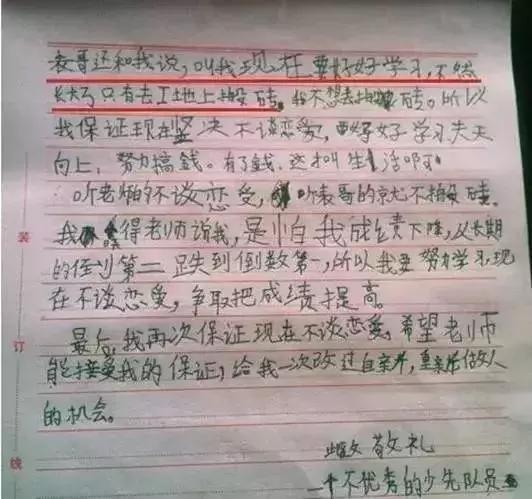 表哥还和我说，叫我现在要好好学习，不然
长大了只有去工地上搬砖。我不想去搬砖。所以
我保证现在坚决不谈恋爱，要好好学习天天
向上，努力搞钱。有了钱，这才叫生活啊
听老师的不谈恋爱，听表哥的就不搬砖。
我得老师说我，是怕我成绩下降，从长期
的倒数第二跌到倒数第一，所以我要努力学习，现
在不谈恋爱，争取把成绩提高。
最后，我再次保证现在不谈恋爱，希望老师
能接受我的保证，给我一次改过自新，重新做人
的机会。
此致敬礼
一个不优秀的少先队员
装
订
线